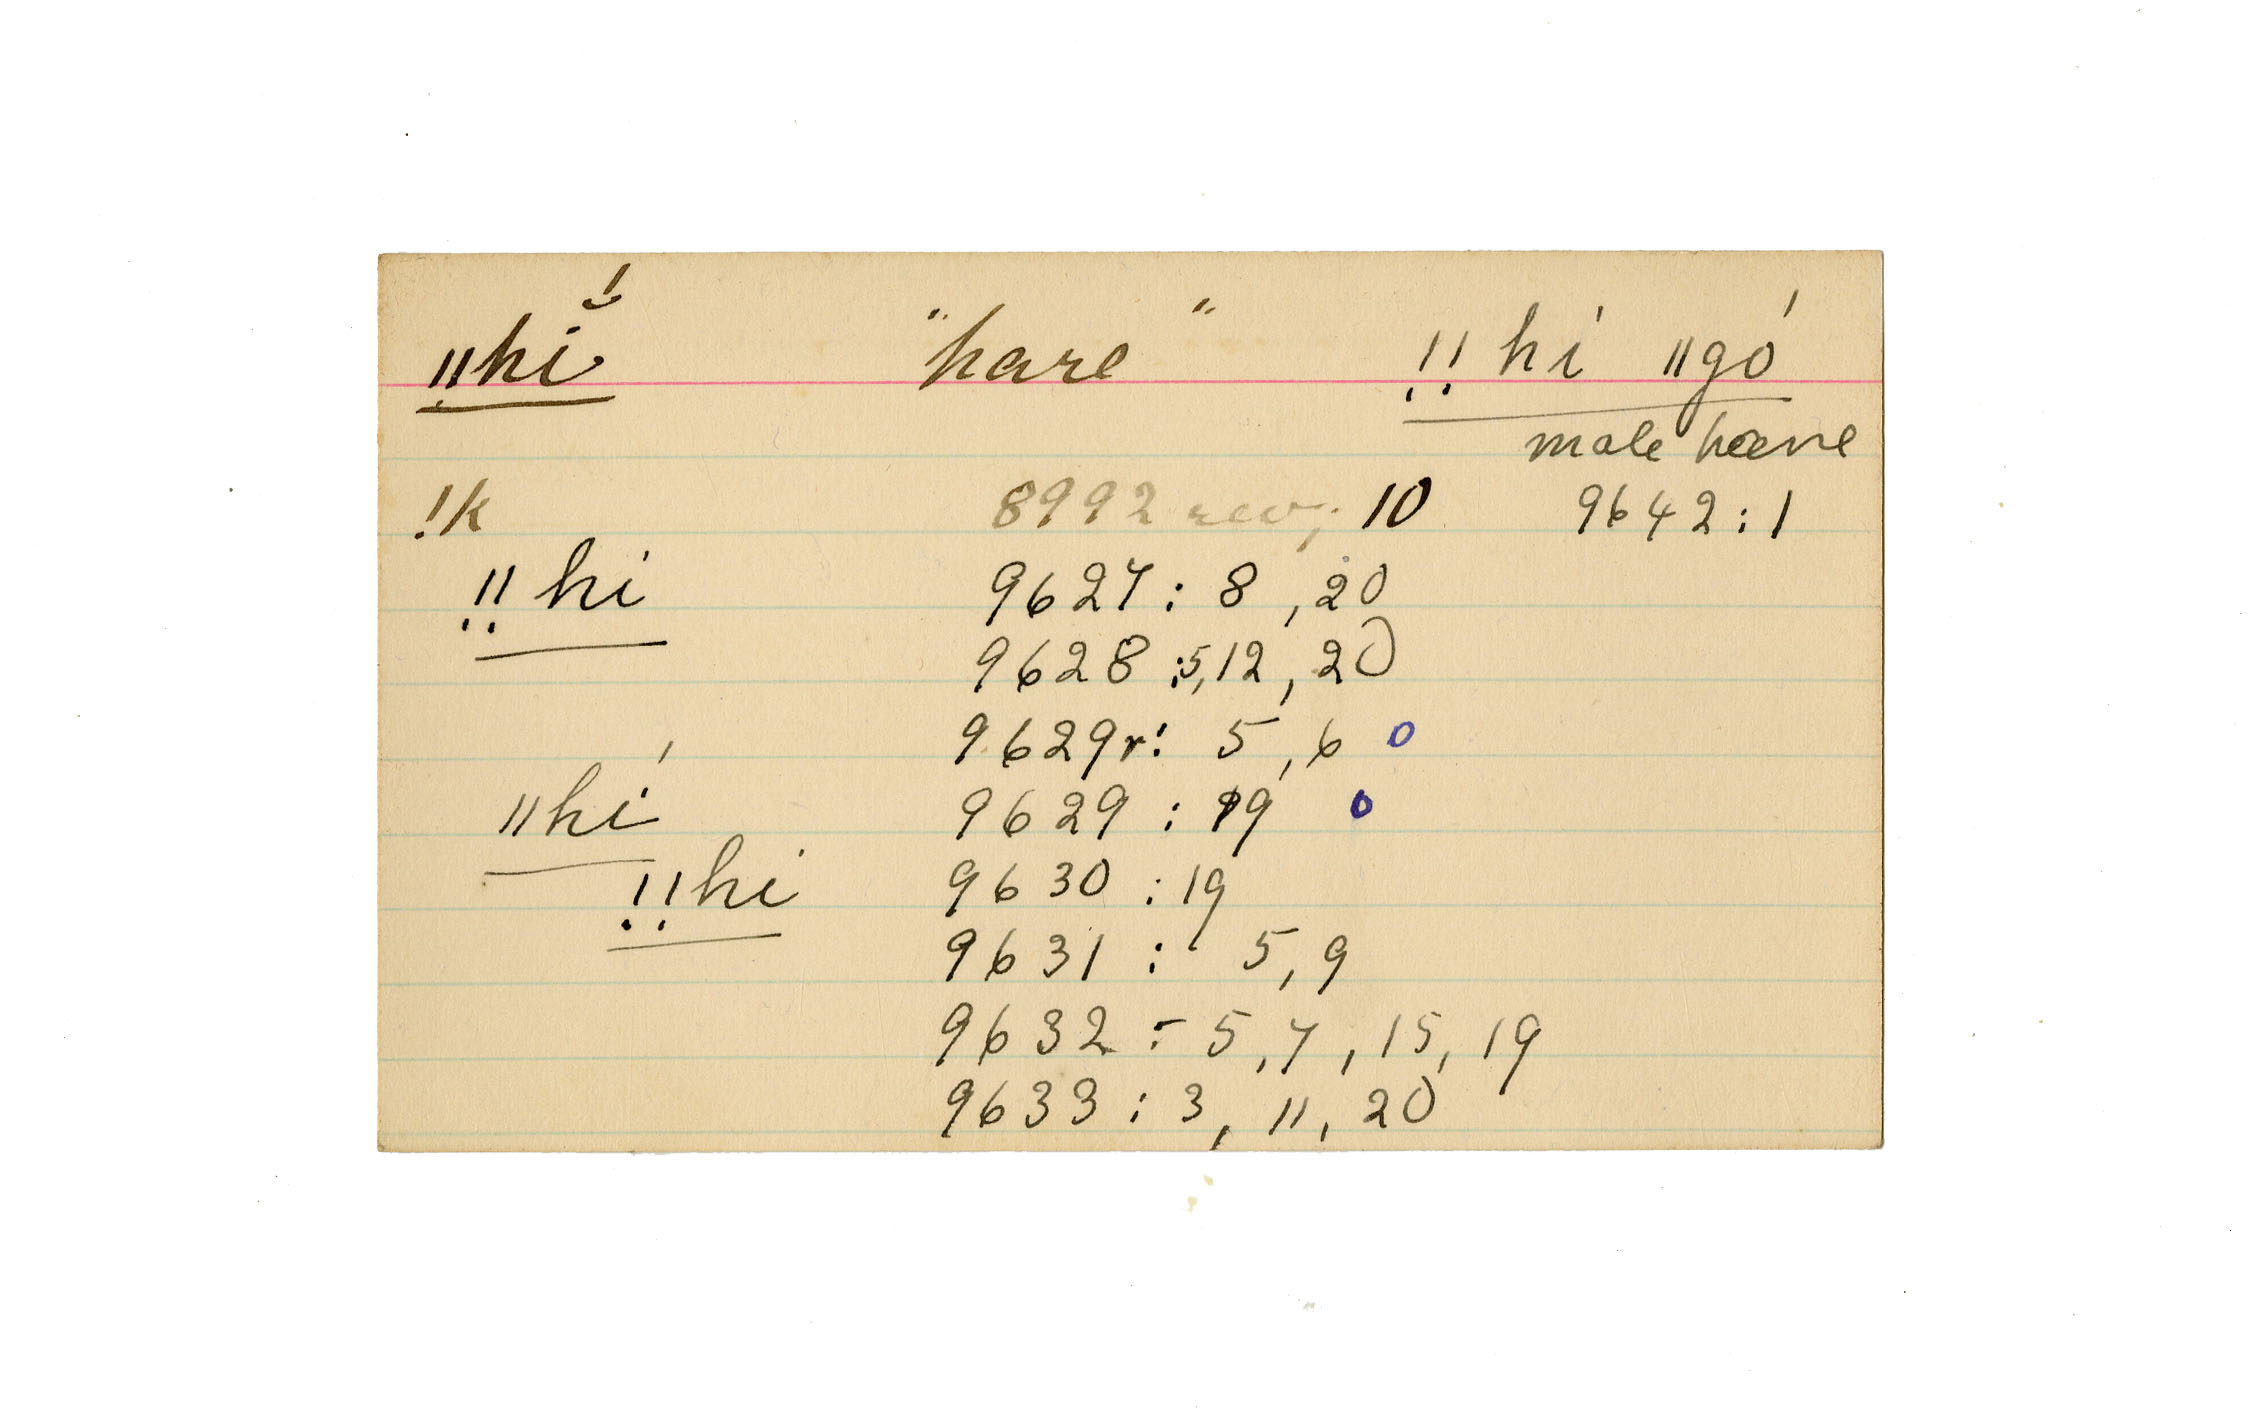 ǁhĭ́ "hare" !!hí ǁgó
male hare
!k 8992 rev; 10 9642:1
!!hi 9627: 8, 20
9628:5,12, 20
9629r: 5, 6 o
ǁhí 9629: 19 o
!!hi 9630:19
9631: 5, 9
9632: 5, 7, 15, 19
9633: 3, 11, 20